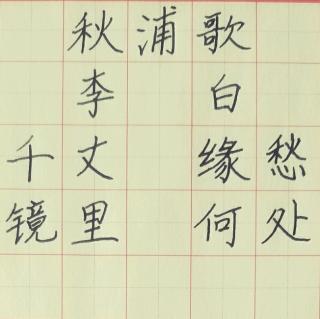 秋浦歌
李 白
千丈 缘愁
镜里 何处